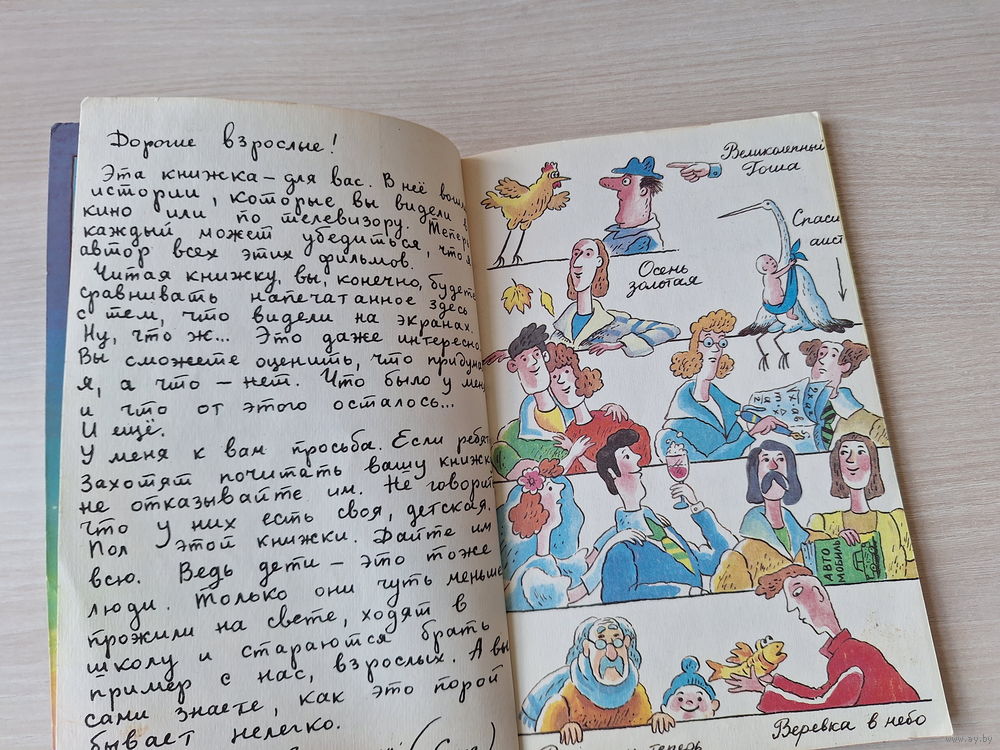 Дорогие взрослые!
Эта книжка – для вас. В неё вошли
истории, которые вы видели в
кино или по телевизору. Теперь
каждый может убедиться, что я
автор всех этих фильмов.
Читая книжку, вы, конечно, будете
сравнивать напечатанное здесь
с тем, что видели на экранах.
Ну, что ж... Это даже интересно.
Вы сможете оценить, что придумал
я, а что – нет. Что было у меня
и что от этого осталось...
И ещё.
У меня к вам просьба. Если ребята
захотят почитать вашу книжку
не отказывайте им. Не говорите
что у них есть своя, детская.
Пол этой книжки. Дайте им
всю. Ведь дети – это тоже
люди. Только они чуть меньше
прожили на свете, ходят в
школу и стараются брать
пример с нас, взрослых. А вы
сами знаете, как это порой
бывает нелегко.
Великолепный
Гоша
Спаси
аист
Осень
золотая
2х·ав
АВТО
МОБИЛЬ
теперь
Веревка в небо
www.ay.by